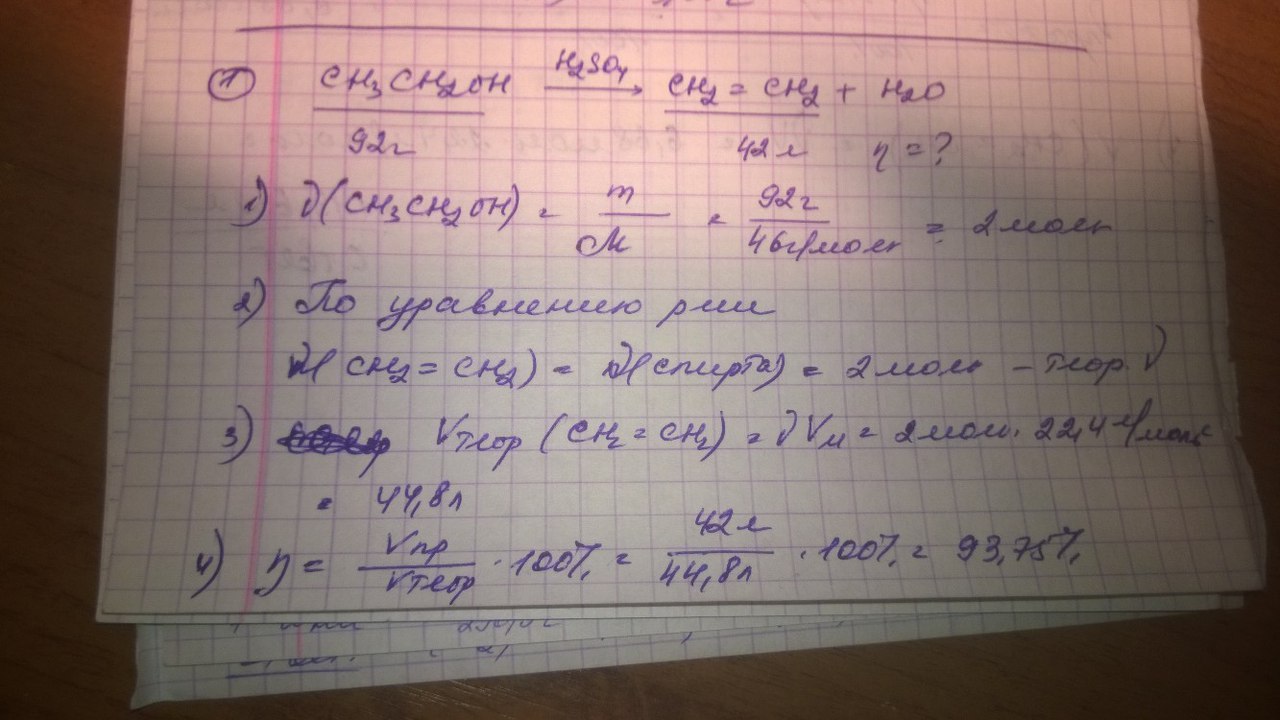 1 CH3CH2OH H2SO4 → CH2 = CH2 + H2O
92г 42л η = ?
1) ν(CH3CH2OH) = m/M = 92г/46г/моль = 2моль
2) По уравнению р-ии
ν(CH2 = CH2) = ν(спирта) = 2моль – теор. ν
3) Vтеор (CH2 = CH2) = νVм = 2моль · 22,4 л/моль
= 44,8л
4) η = Vпр/Vтеор · 100% = 42л/44,8л · 100% = 93,75%